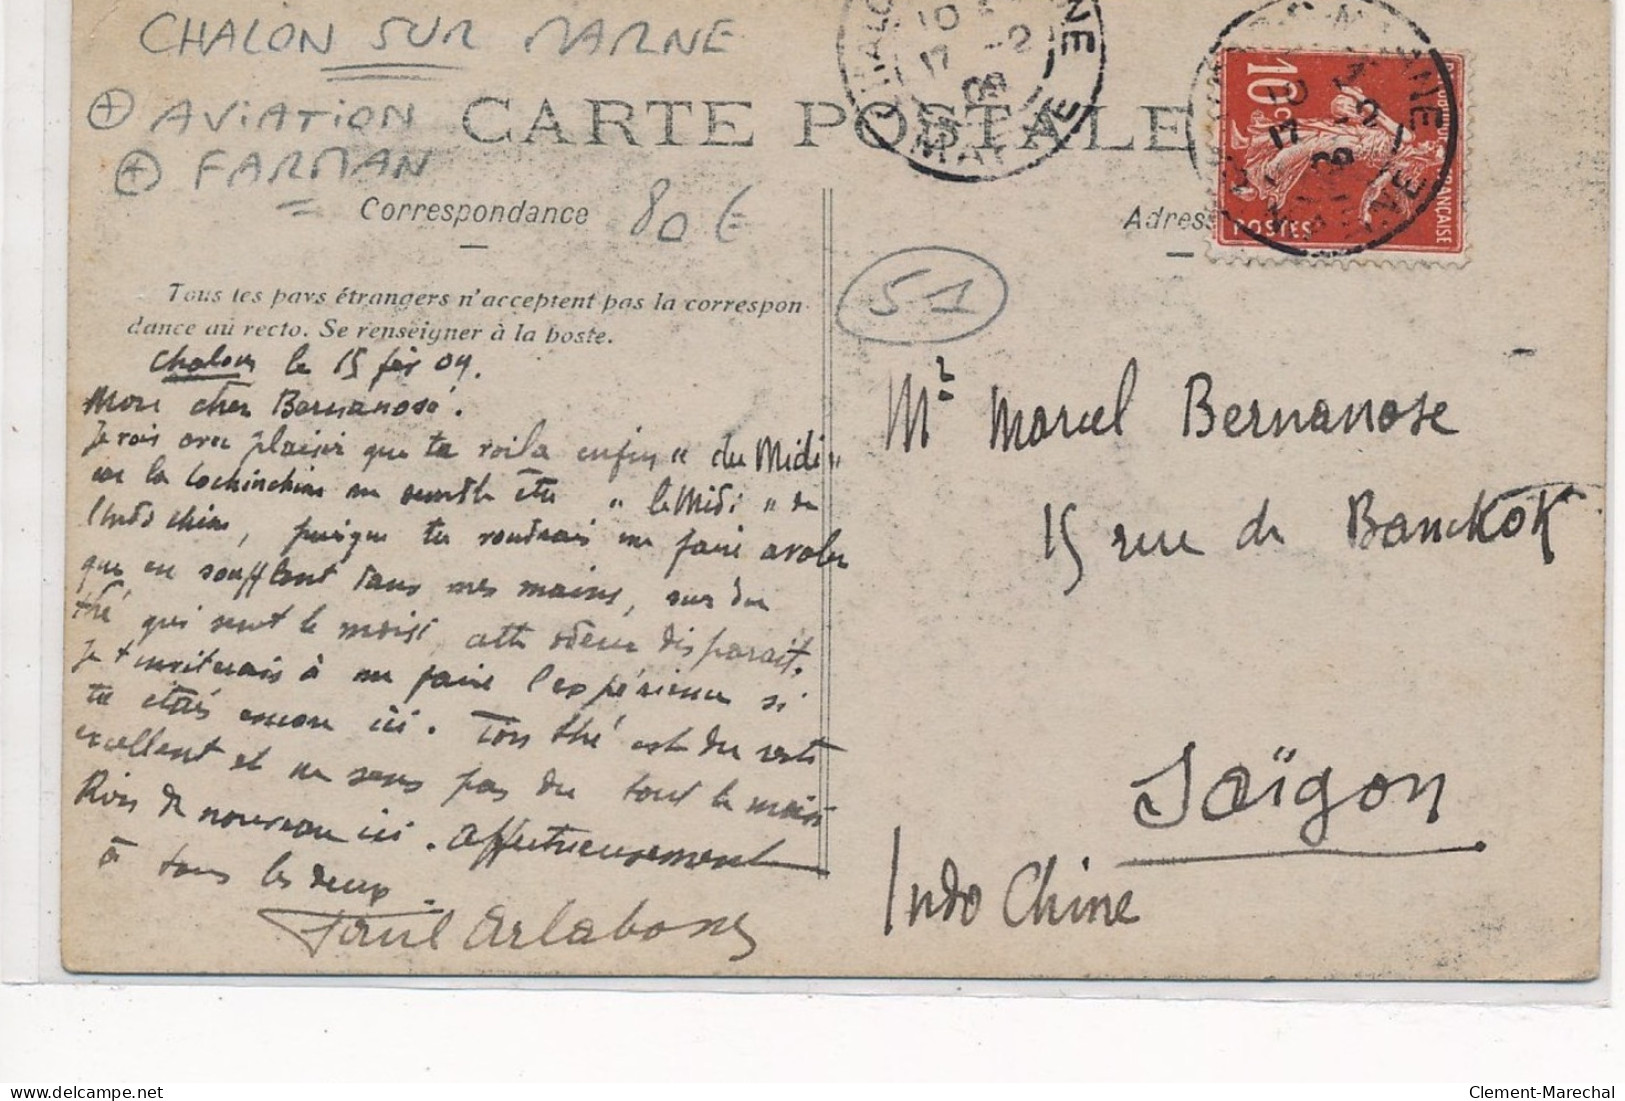 CHALON SUR MARNE
AVIATION
FARMAN
CARTE POSTALE
Correspondance
80 €
Adress
10c
POSTES
Tous les pays étrangers n'acceptent pas la correspon-
dance au recto. Se renseigner à la poste.
51
Chalons le 15 fév 09.
Mon cher Bernanose.
Je vois avec plaisir que te voila enfin "du Midi"
car la Cochinchine me semble être "le Midi" de
l'Indo chine, puisque tu voudrais me faire avaler
que en soufflant dans mes mains, sur du
thé qui sent le moisi, cette odeur disparait.
Je t'inviterais à me faire l'expérience si
tu étais encore ici. Ton thé est du reste
excellent et ne sens pas du tout le moisi
Rien de nouveau ici. Affectueusement
à tous les deux.
Paul
Mr Marcel Bernanose
15 rue de Banckok
Saïgon
Indo Chine
Clement-Marechal